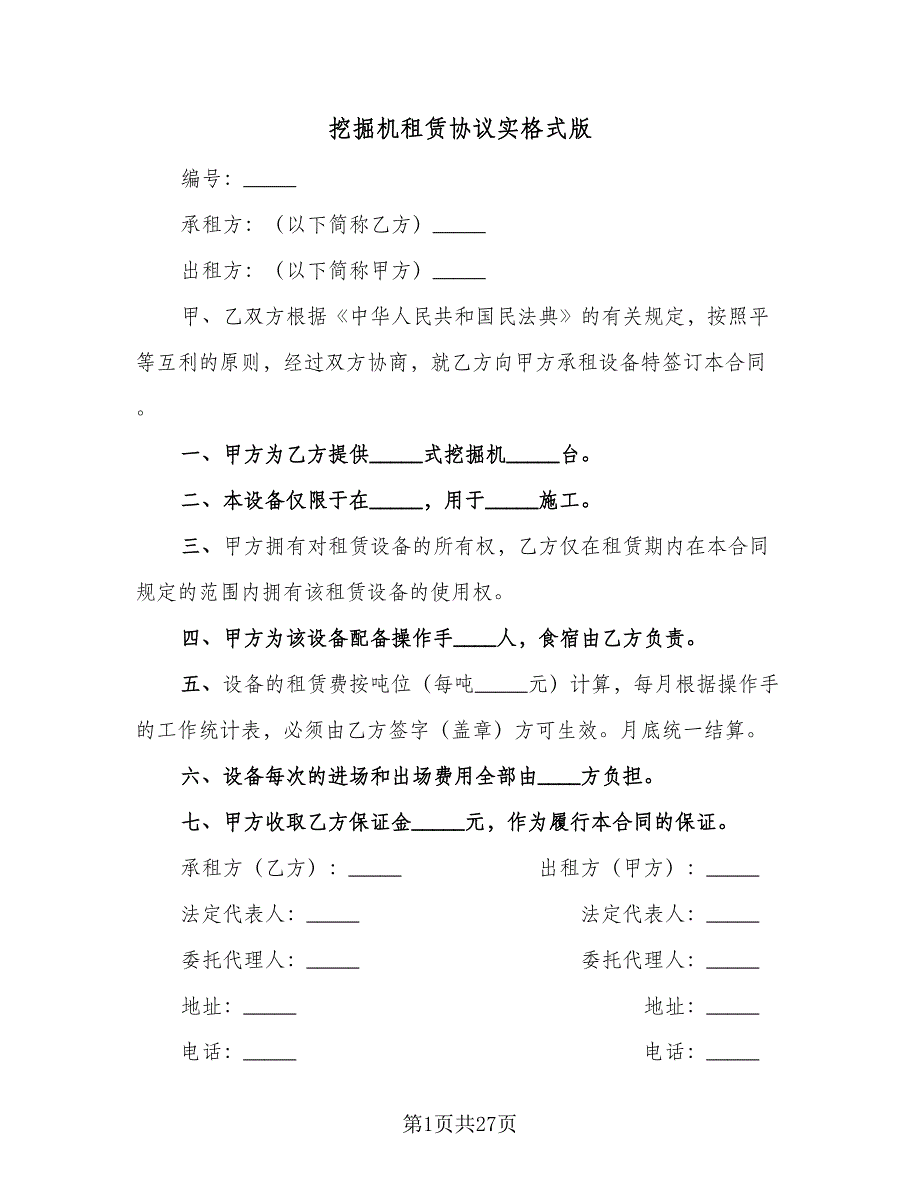 挖掘机租赁协议实格式版
编号：_____
承租方：（以下简称乙方）_____
出租方：（以下简称甲方）_____
甲、乙双方根据《中华人民共和国民法典》的有关规定，按照平
等互利的原则，经过双方协商，就乙方向甲方承租设备特签订本合同
。
一、甲方为乙方提供_____式挖掘机_____台。
二、本设备仅限于在_____，用于_____施工。
三、甲方拥有对租赁设备的所有权，乙方仅在租赁期内在本合同
规定的范围内拥有该租赁设备的使用权。
四、甲方为该设备配备操作手____人，食宿由乙方负责。
五、设备的租赁费按吨位（每吨_____元）计算，每月根据操作手
的工作统计表，必须由乙方签字（盖章）方可生效。月底统一结算。
六、设备每次的进场和出场费用全部由____方负担。
七、甲方收取乙方保证金_____元，作为履行本合同的保证。
承租方（乙方）：_____ 出租方（甲方）：_____
法定代表人：_____ 法定代表人：_____
委托代理人：_____ 委托代理人：_____
地址：_____ 地址：_____
电话：_____ 电话：_____
第1页共27页